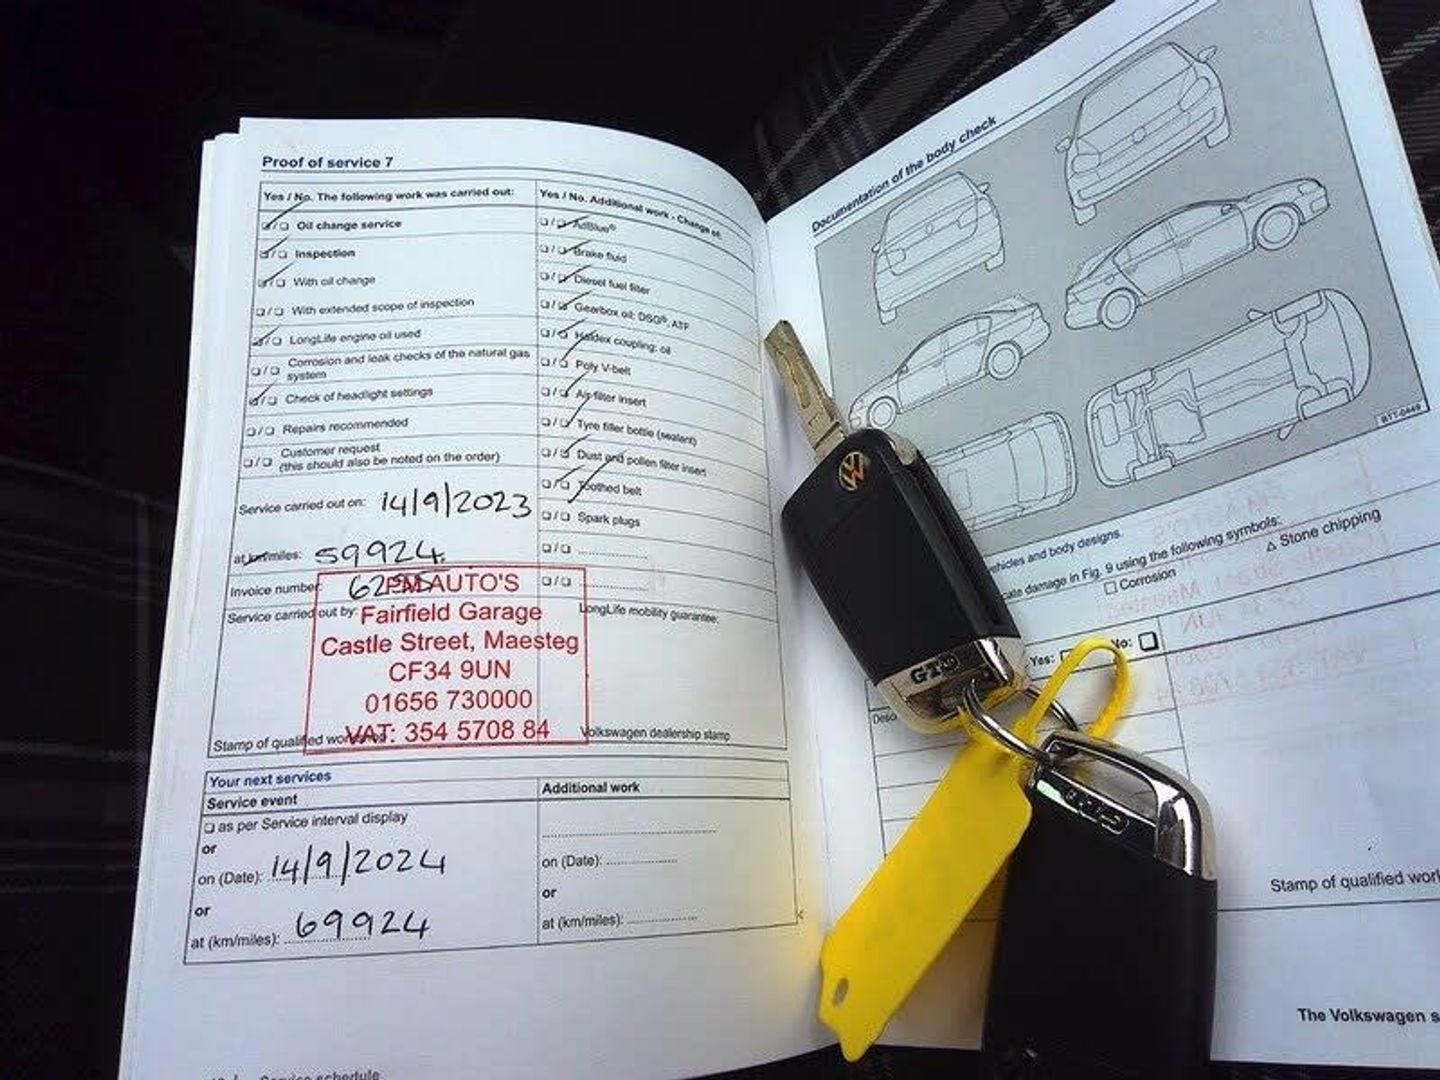 Proof of service 7
Yes / No. The following work was carried out:
Oil change service
Inspection
With oil change
With extended scope of inspection
LongLife engine oil used
Corrosion and leak checks of the natural gas
system
Check of headlight settings
Repairs recommended
Customer request
(this should also be noted on the order)
Service carried out on: 14/9/2023
at km/miles: 59924.
Invoice number:
Service carried out by:
PM AUTO'S
Fairfield Garage
Castle Street, Maesteg
CF34 9UN
01656 730000
VAT: 354 5708 84
Stamp of qualified
Yes / No. Additional work - Change of:
AdBlue®
Brake fluid
Diesel fuel filter
Gearbox oil: DSG®, ATF
Haldex coupling: oil
Poly V-belt
Air filter insert
Tyre filler bottle (sealant)
Dust and pollen filter insert
Toothed belt
Spark plugs
LongLife mobility guarantee:
Volkswagen dealership stamp
Your next services
Service event
as per Service interval display
or
on (Date): 14/9/2024
or
at (km/miles): 69924
Additional work
on (Date):
or
at (km/miles):
Service schedule
Documentation of the body check
BTT-0449
vehicles and body designs.
damage in Fig. 9 using the following symbols:
Corrosion
△ Stone chipping
Yes:
No:
Stamp of qualified
The Volkswagen
GTD
GTD